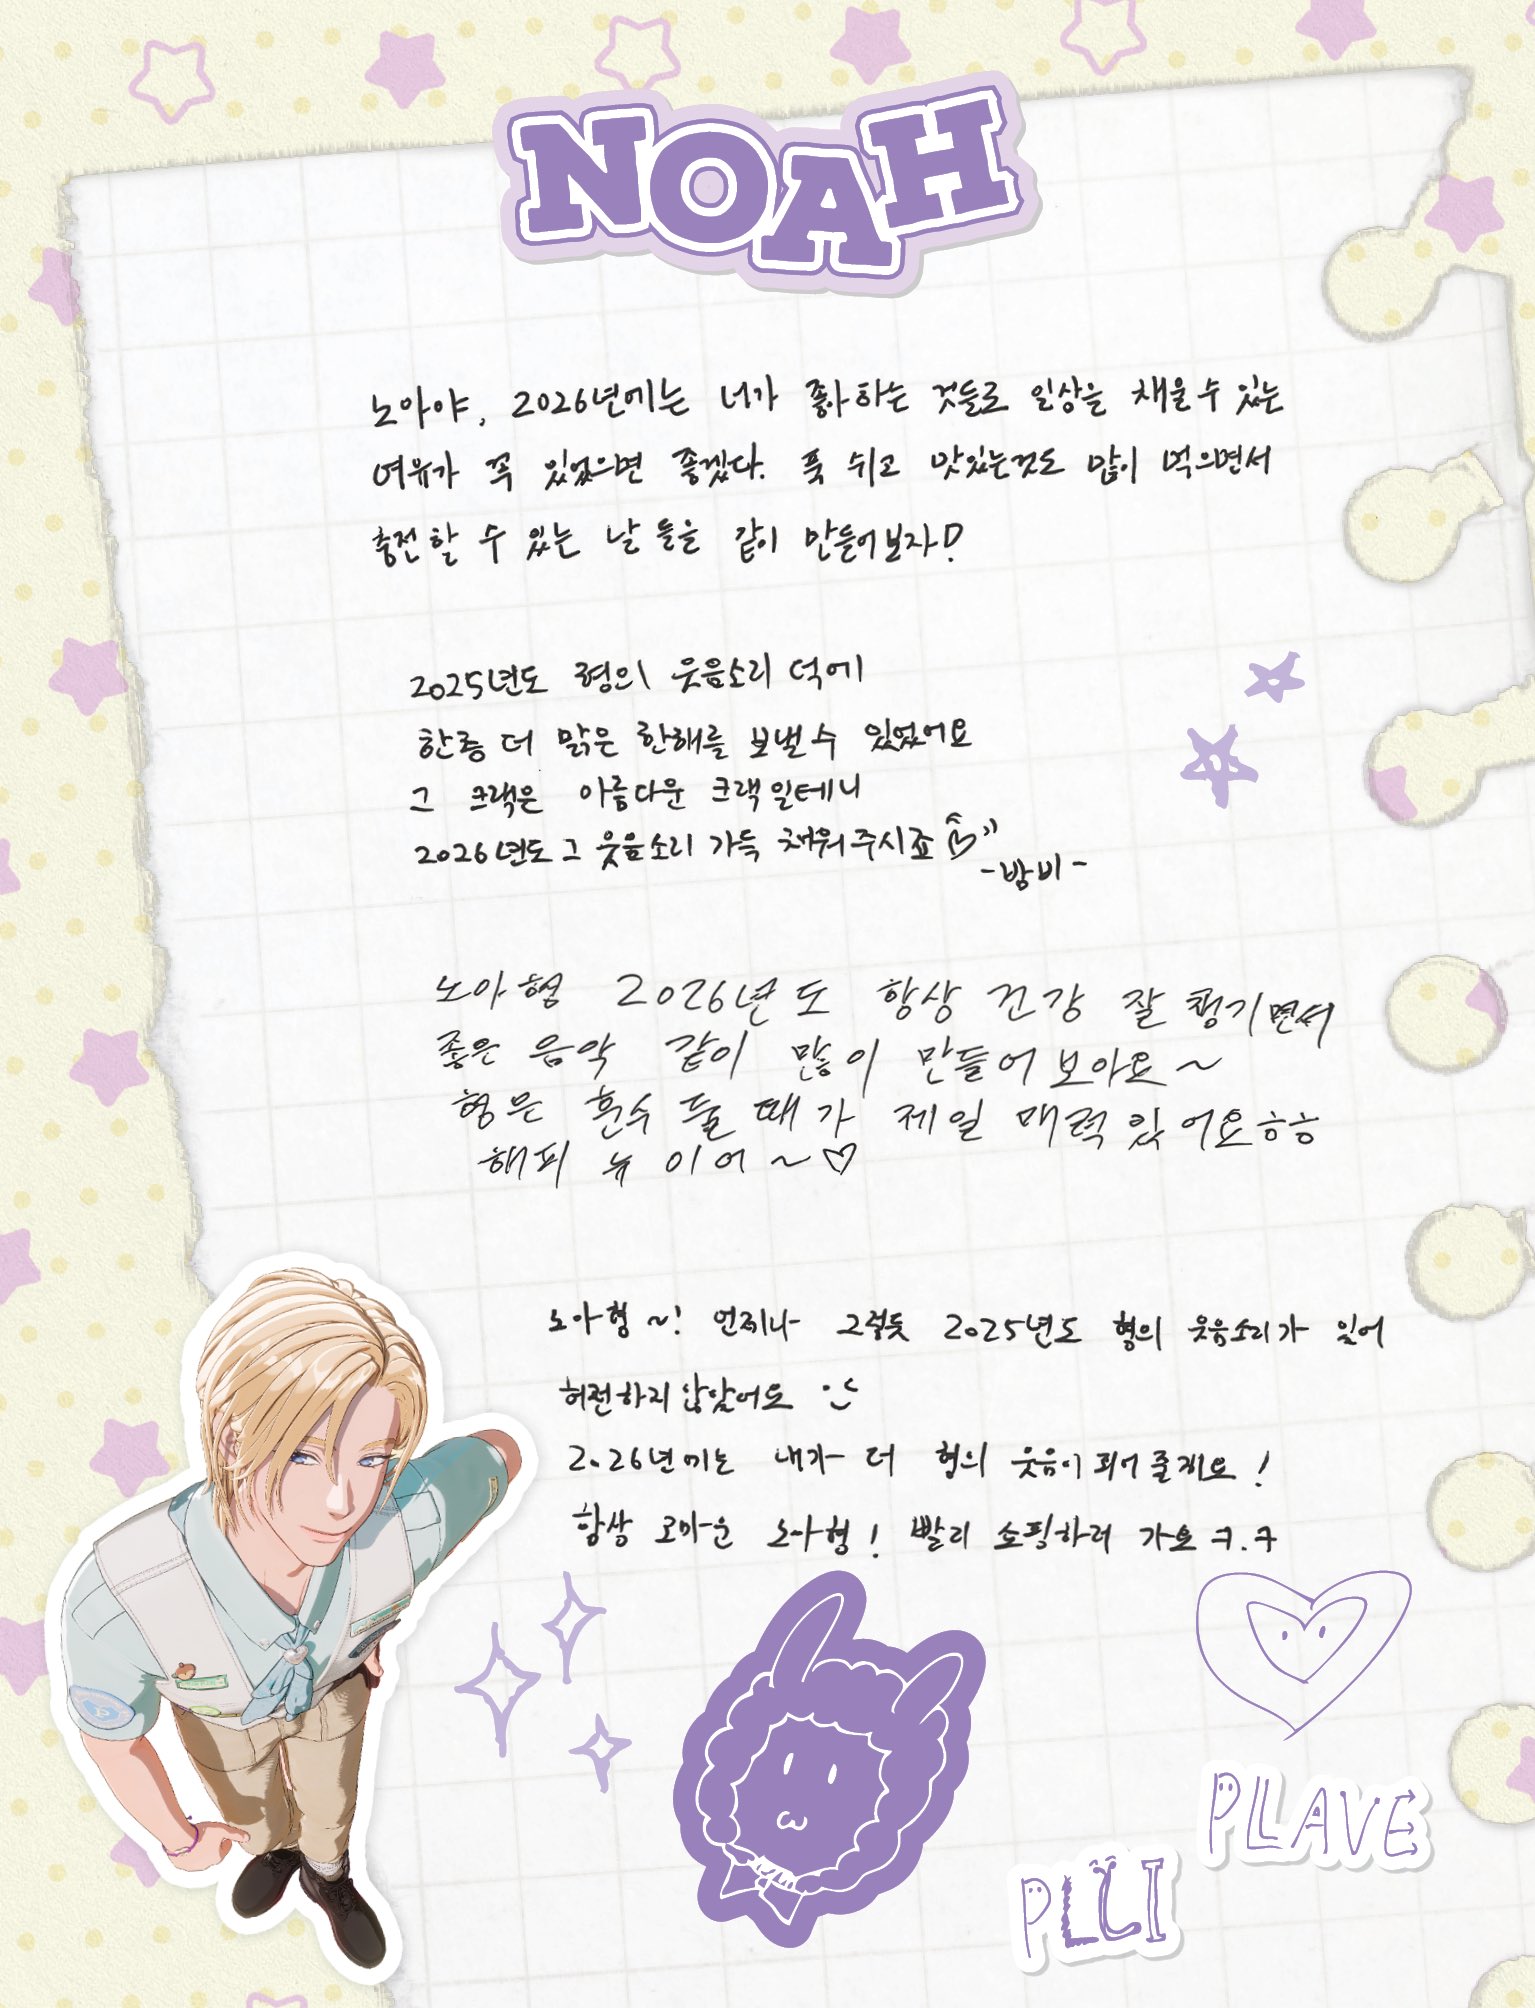 NOAH
노아야, 2026년에는 너가 좋아하는 것들로 일상을 채울수있는
여유가 꼭 있었으면 좋겠다. 푹 쉬고 맛있는것도 많이 먹으면서
충전할 수 있는 날들을 같이 만들어보자!
2025년도 형의 웃음소리 덕에
한층 더 맑은 한해를 보낼수 있었어요
그 크랙은 아름다운 크랙일테니
2026년도 그 웃음소리 가득 채워주시죠
-밤비-
노아형 2026년도 항상 건강 잘 챙기면서
좋은 음악 같이 많이 만들어보아요~
형은 훈수 둘 때가 제일 매력있어요ㅎㅎ
해피 뉴이어~♡
노아형~! 언제나 그렇듯 2025년도 형의 웃음소리가 있어
허전하지 않았어요
2026년에는 내가 더 형의 웃음이 되어줄게요!
항상 고마운 노아형! 빨리 쇼핑하러 가요ㅋ.ㅋ
PLAVE
PLLI